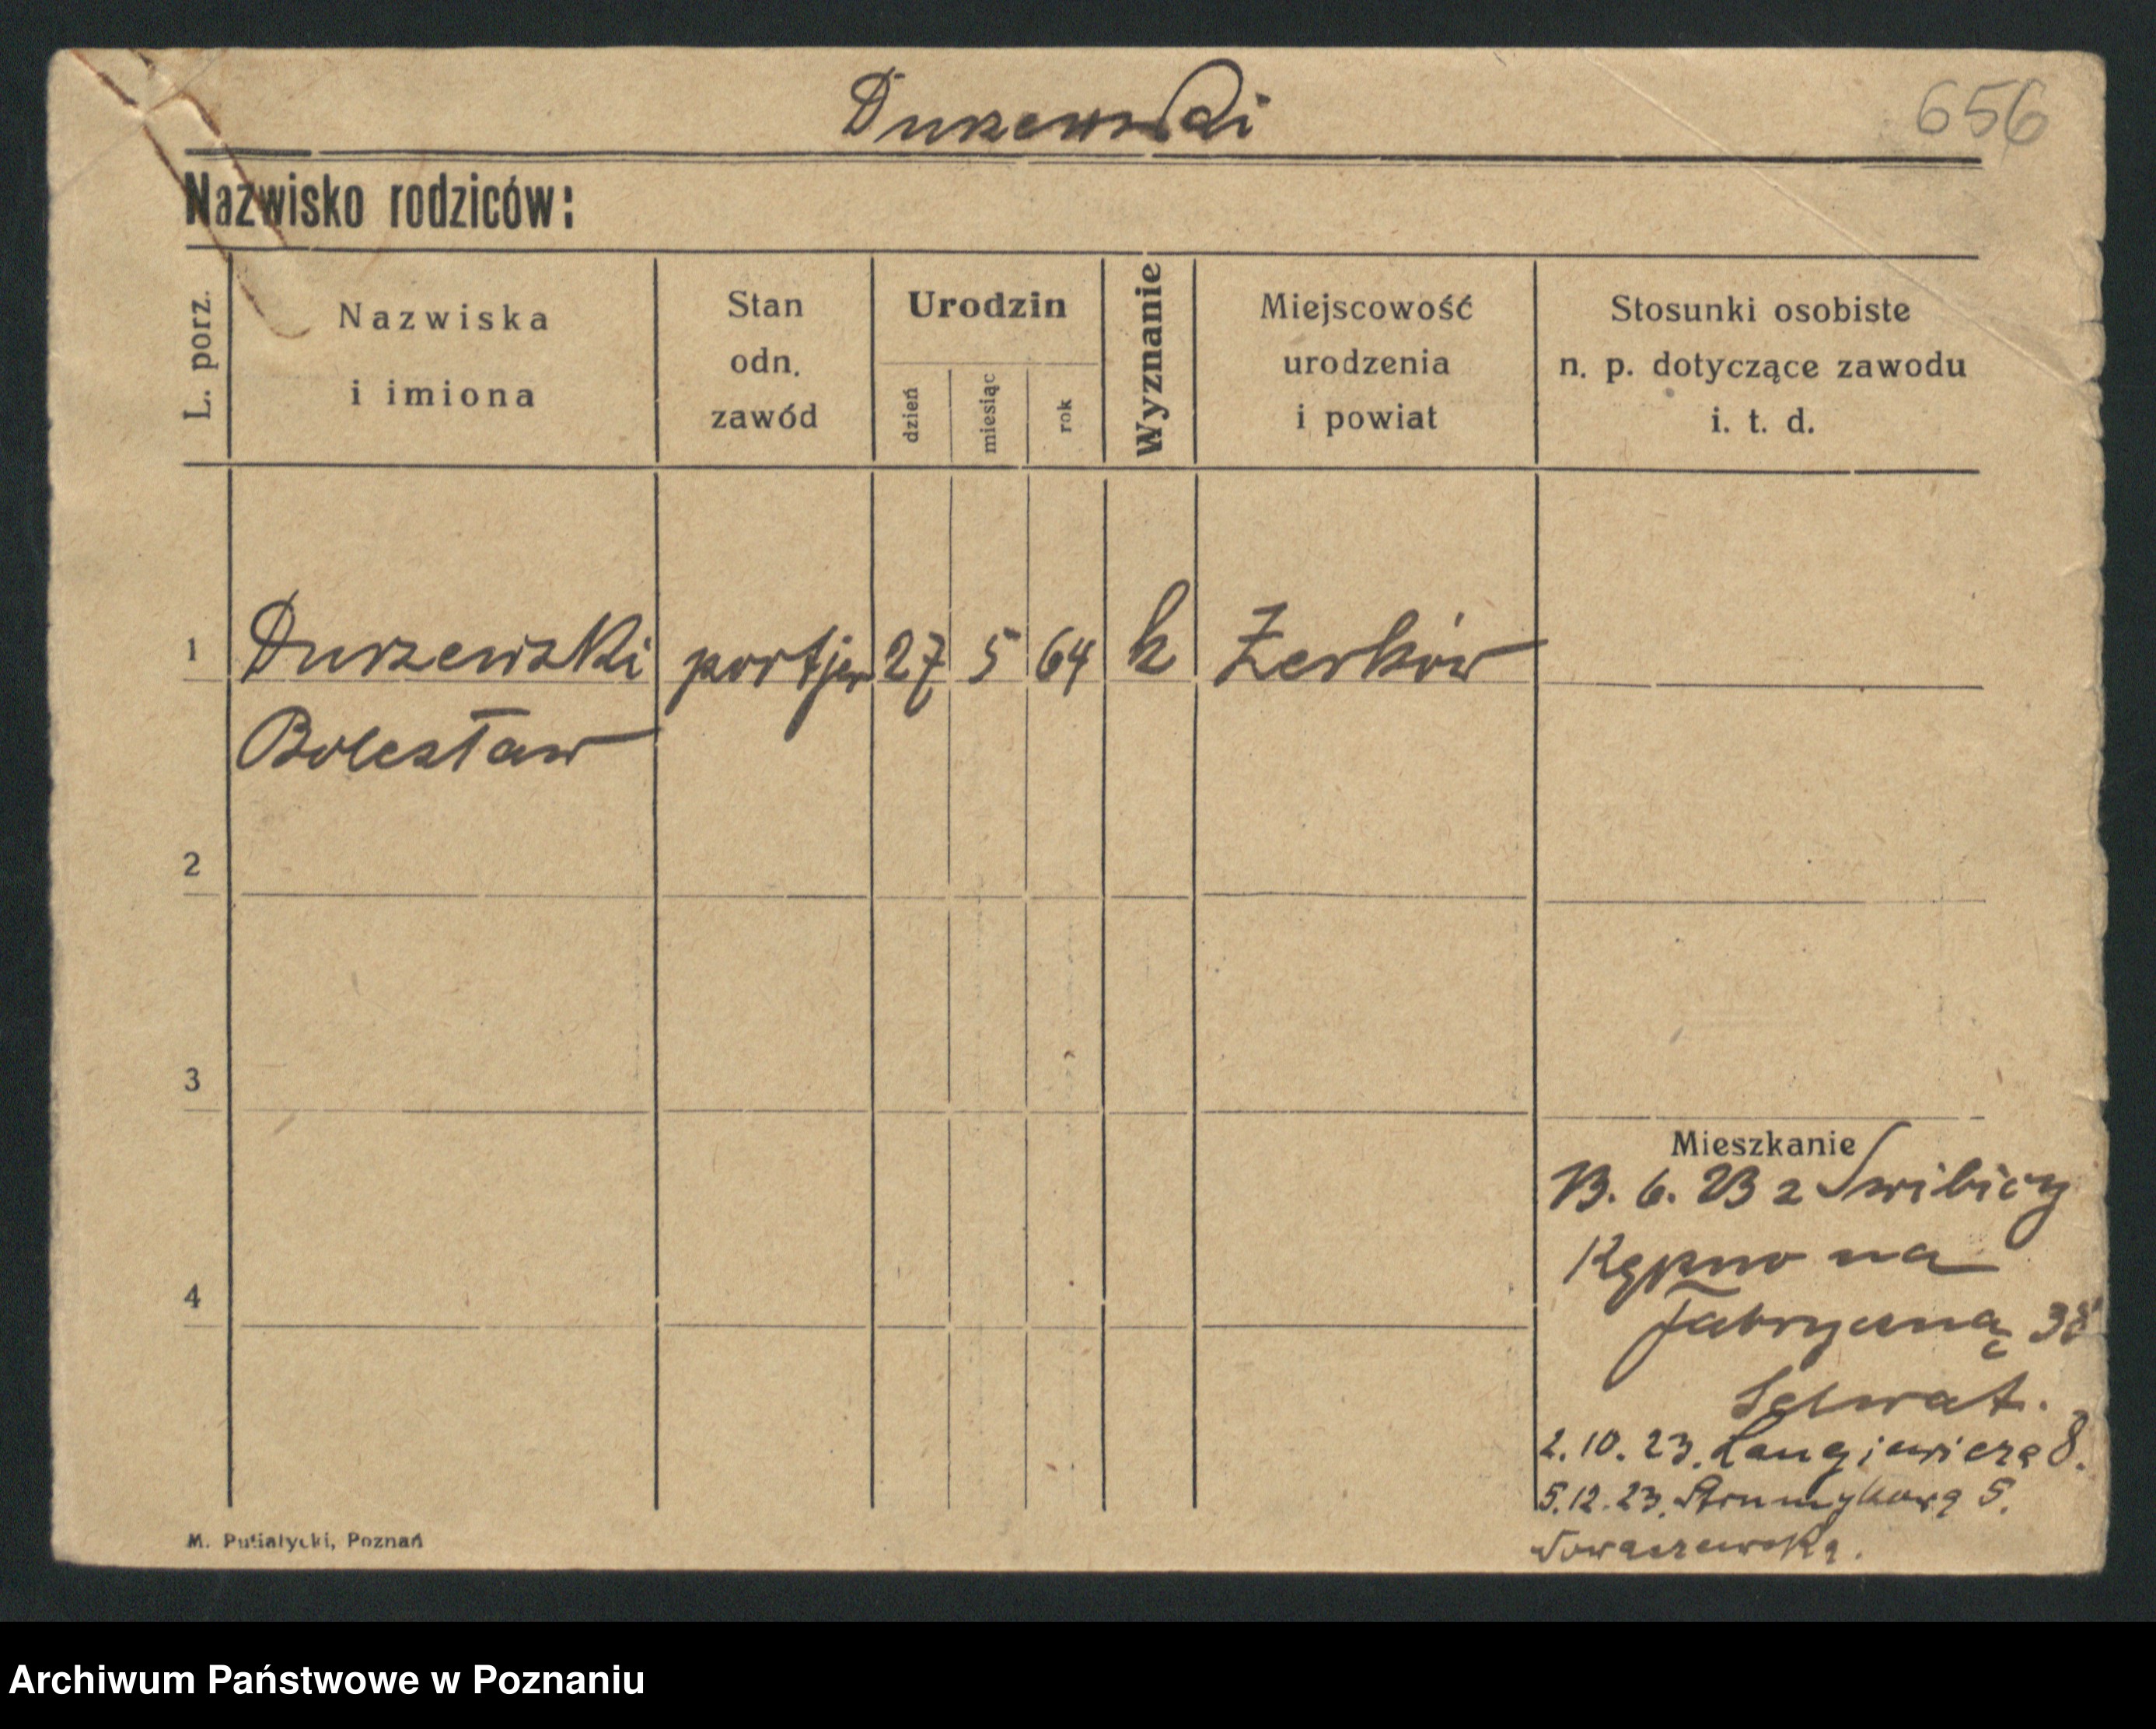 Durzewski
656
Nazwisko rodziców:
L. porz.
Nazwiska
i imiona
Stan
odn.
zawód
Urodzin
dzień
miesiąc
rok
Wyznanie
Miejscowość
urodzenia
i powiat
Stosunki osobiste
n. p. dotyczące zawodu
i. t. d.
1 Durzewski portjer 27 5 64 k Żerków
Bolesław
2
3
4
Mieszkanie
13. 6. 23 z
Kępno na
Fabryczną 38
2. 10. 23. Langiewicza 8.
5. 12. 23. Strumykowa 5.
M. Putiatycki, Poznań
Archiwum Państwowe w Poznaniu